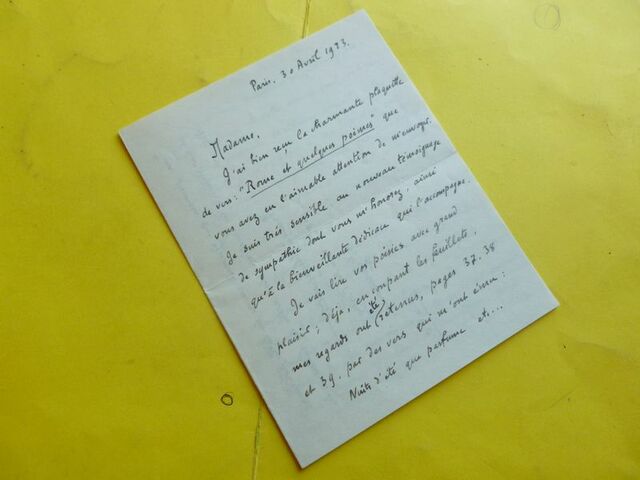 Paris, 30 Avril 1923.
Madame,
J'ai bien reçu la charmante plaquette
de vers: "Rome et quelques poèmes" que
vous avez eu l'aimable attention de m'envoyer.
Je suis très sensible au nouveau témoignage
de sympathie dont vous m'honorez, ainsi
qu'à la bienveillante dédicace qui l'accompagne.
Je vais lire vos poésies avec grand
plaisir; déjà, en coupant les feuillets,
mes regards ont été retenus, pages 37. 38
et 39. par des vers qui m'ont ému:
Nuits d'été que parfume et...